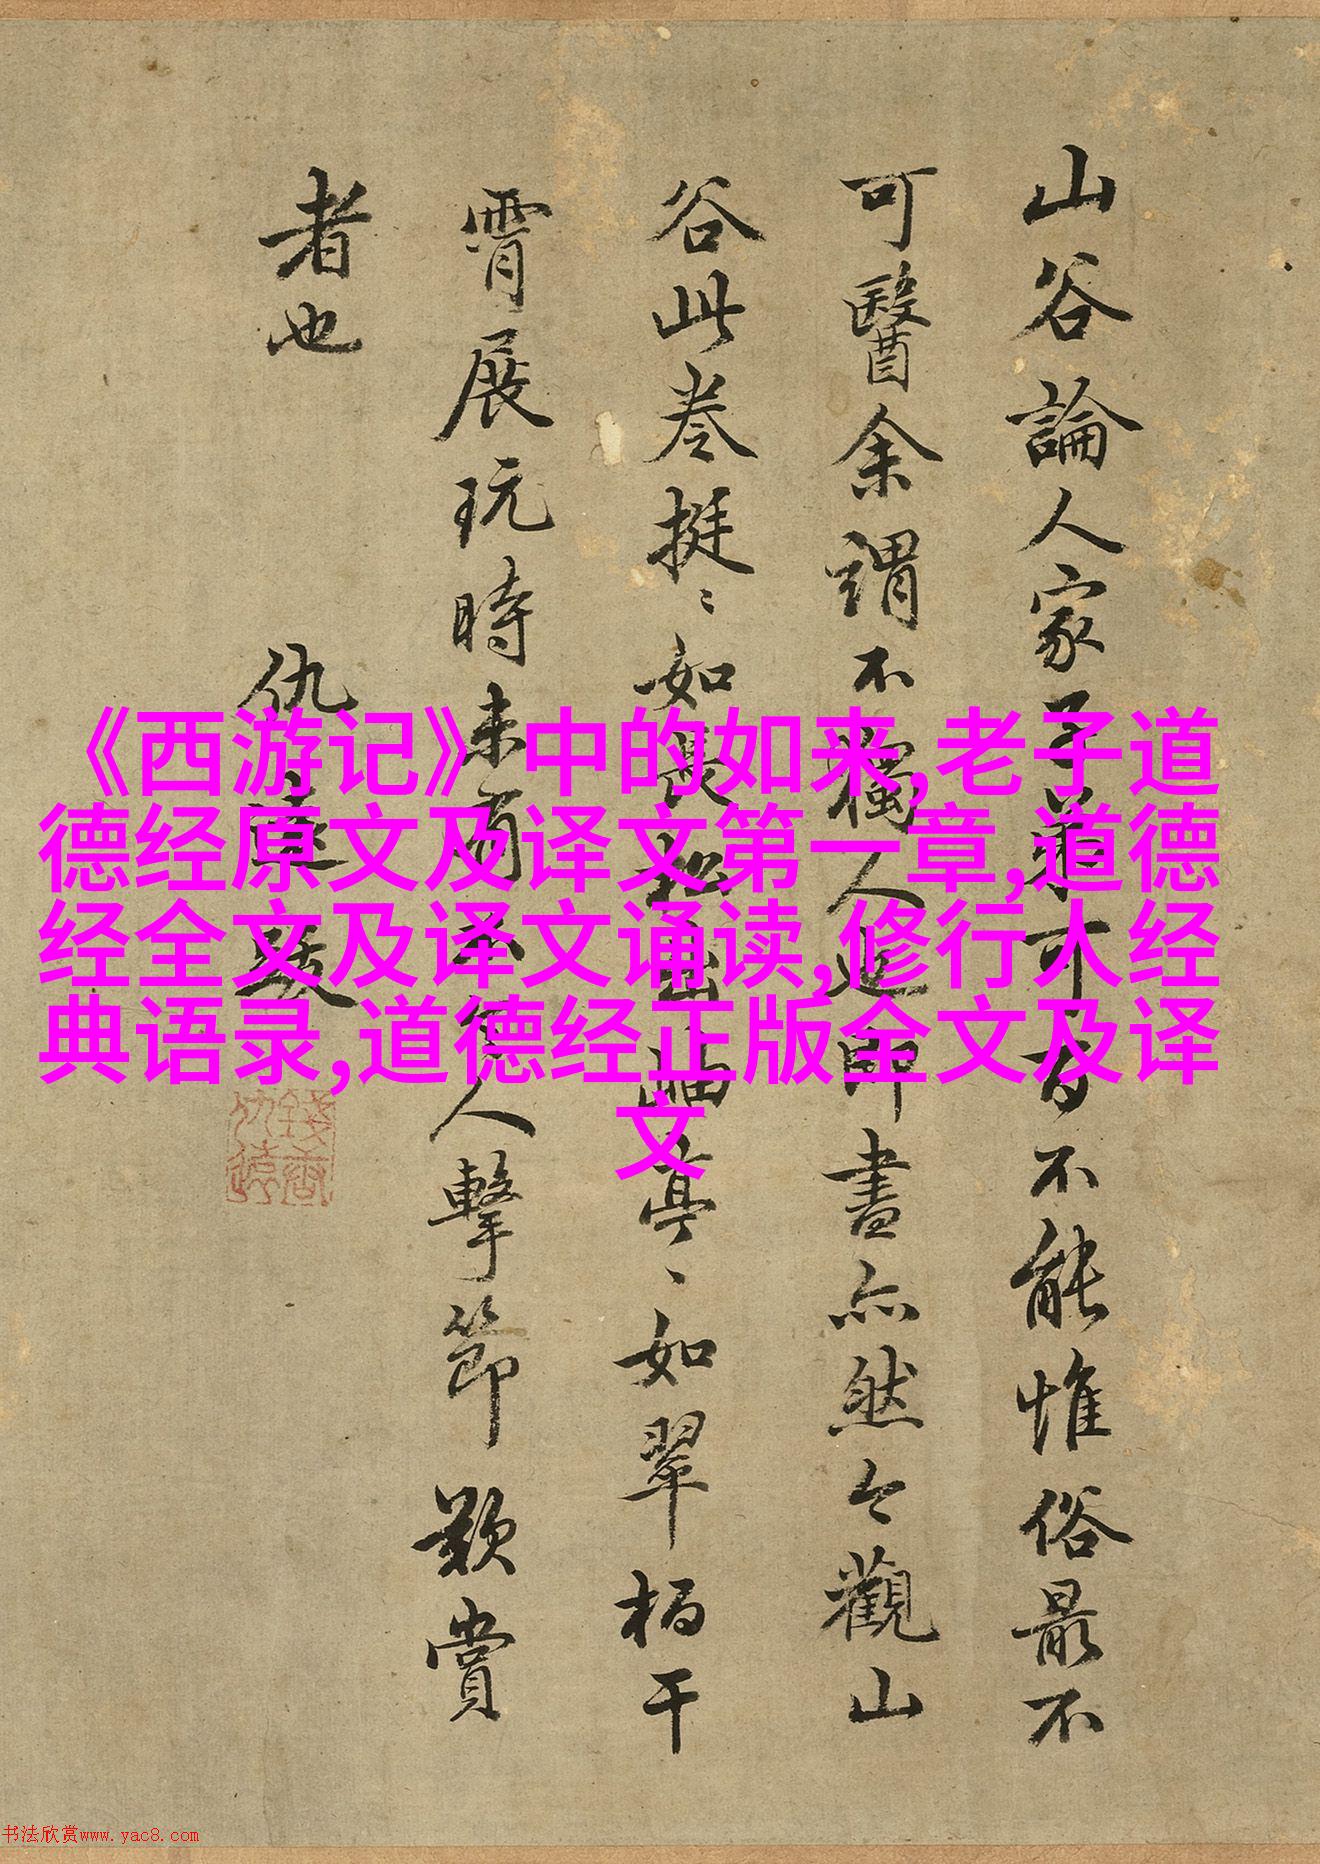 山谷論人家子弟可百不能惟俗最不
可醫余謂不獨人延即畫亦然今觀山
谷此卷挺〻如長松出岫亭〻如翠柏干
霄展玩時未有不令人擊節歎賞
者也
仇遠跋
《西游记》中的如来,老子道
德经原文及译文第一章,道德
经全文及译文诵读,修行人经
典语录,道德经正版全文及译
文
书法欣赏www.yac8.com